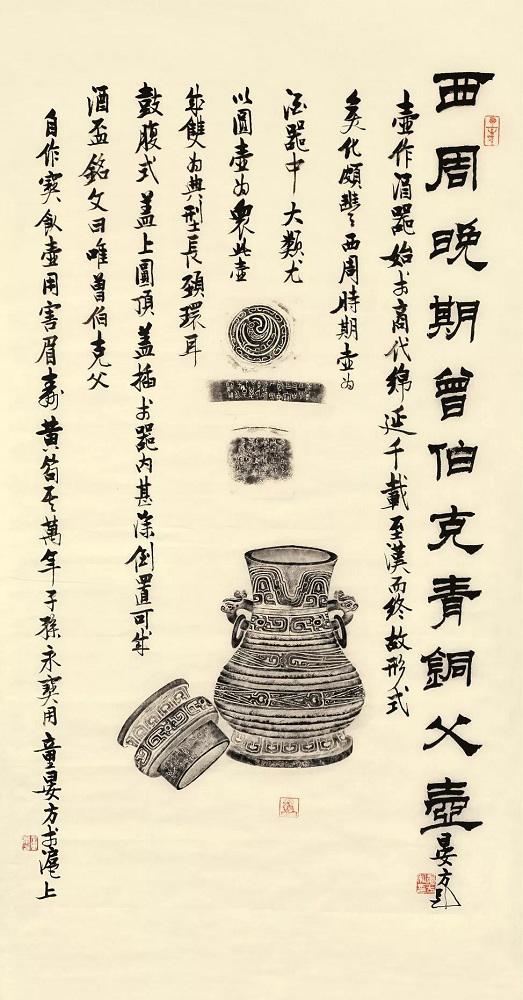 西周晚期曾伯克青銅父壺
晏方題
壺作酒器始於商代綿延千載至漢而終故形式
变化頗豐西周時期壺为
酒器中大類尤
以圓壺为眾此壺
成雙为典型長頸環耳
鼓腹式蓋上圓頂蓋插於器内甚深倒置可成
酒盃銘文曰唯曾伯克父
自作寳飲壺用害眉壽黃耇其萬年子孫永寳用童晏方於滬上